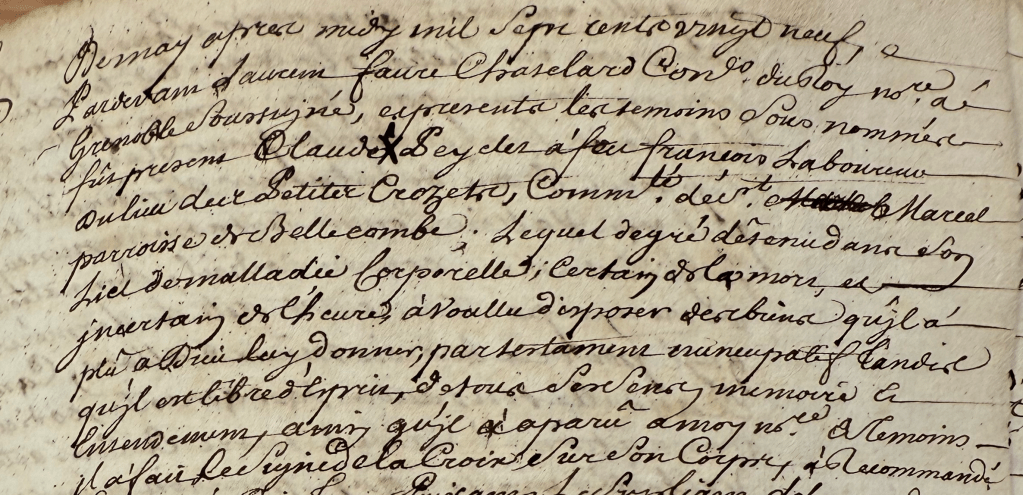 Demay apres midy mil sept cents vingt neuf,
Pardevant Laurem faure Chatelard Con.do du Roy no.re de
Grenoble soussigné, et presents les temoins sous nommés
fût present Claude Peydet à feu françois Laboureur
du lieu des Petites Crozets, Comm.té de S.t Marcel
parroisse de Bellecombe. Lequel de gré détenu dans son
Lict de malladie Corporelle, Certain de la mort, et
jncertain de l'heure, à Voullu disposer des biens qu'jl á
plû a Dieu luy donner, par testament nuncupatif tandis
qu'jl est libre d'Esprit, de tous ses sens, memoire Et
Entendement, ainsi qu'jl á aparû a moy no.re & Temoins
jl á fait le signe de la Croix sur son Corps, à Recommandé